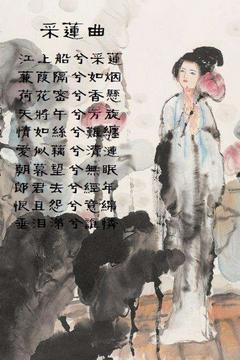 采蓮曲
江上船兮采蓮
蒹葭隔兮如烟
荷花密兮香懸
天將午兮方旋
情如絲兮難纏
愛似藕兮漣
朝暮望兮無眠
郎君去兮經年
恨且怨兮意綿
垂泪漭兮誰憐